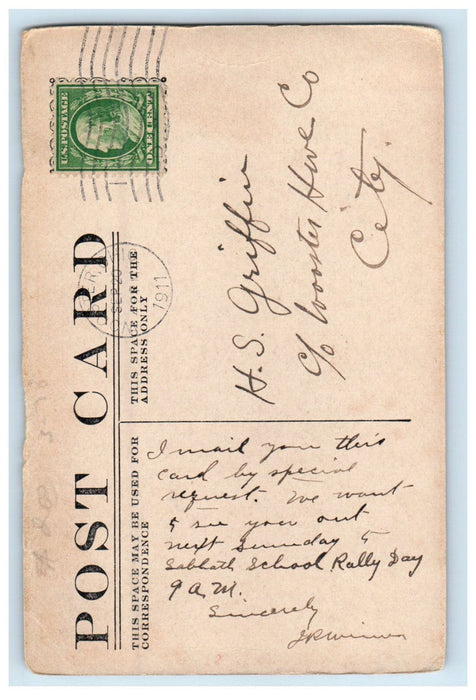 POST CARD
THIS SPACE MAY BE USED FOR
CORRESPONDENCE
THIS SPACE FOR THE
ADDRESS ONLY
U.S. POSTAGE
ONE CENT
SEP 20
1911
H. S. Griffin
c/o Wooster Hwe Co
City.
I mail you this
card by special
request. We want
to see you out
next Sunday to
Sabbath School Rally Day
9 A.M.
Sincerely